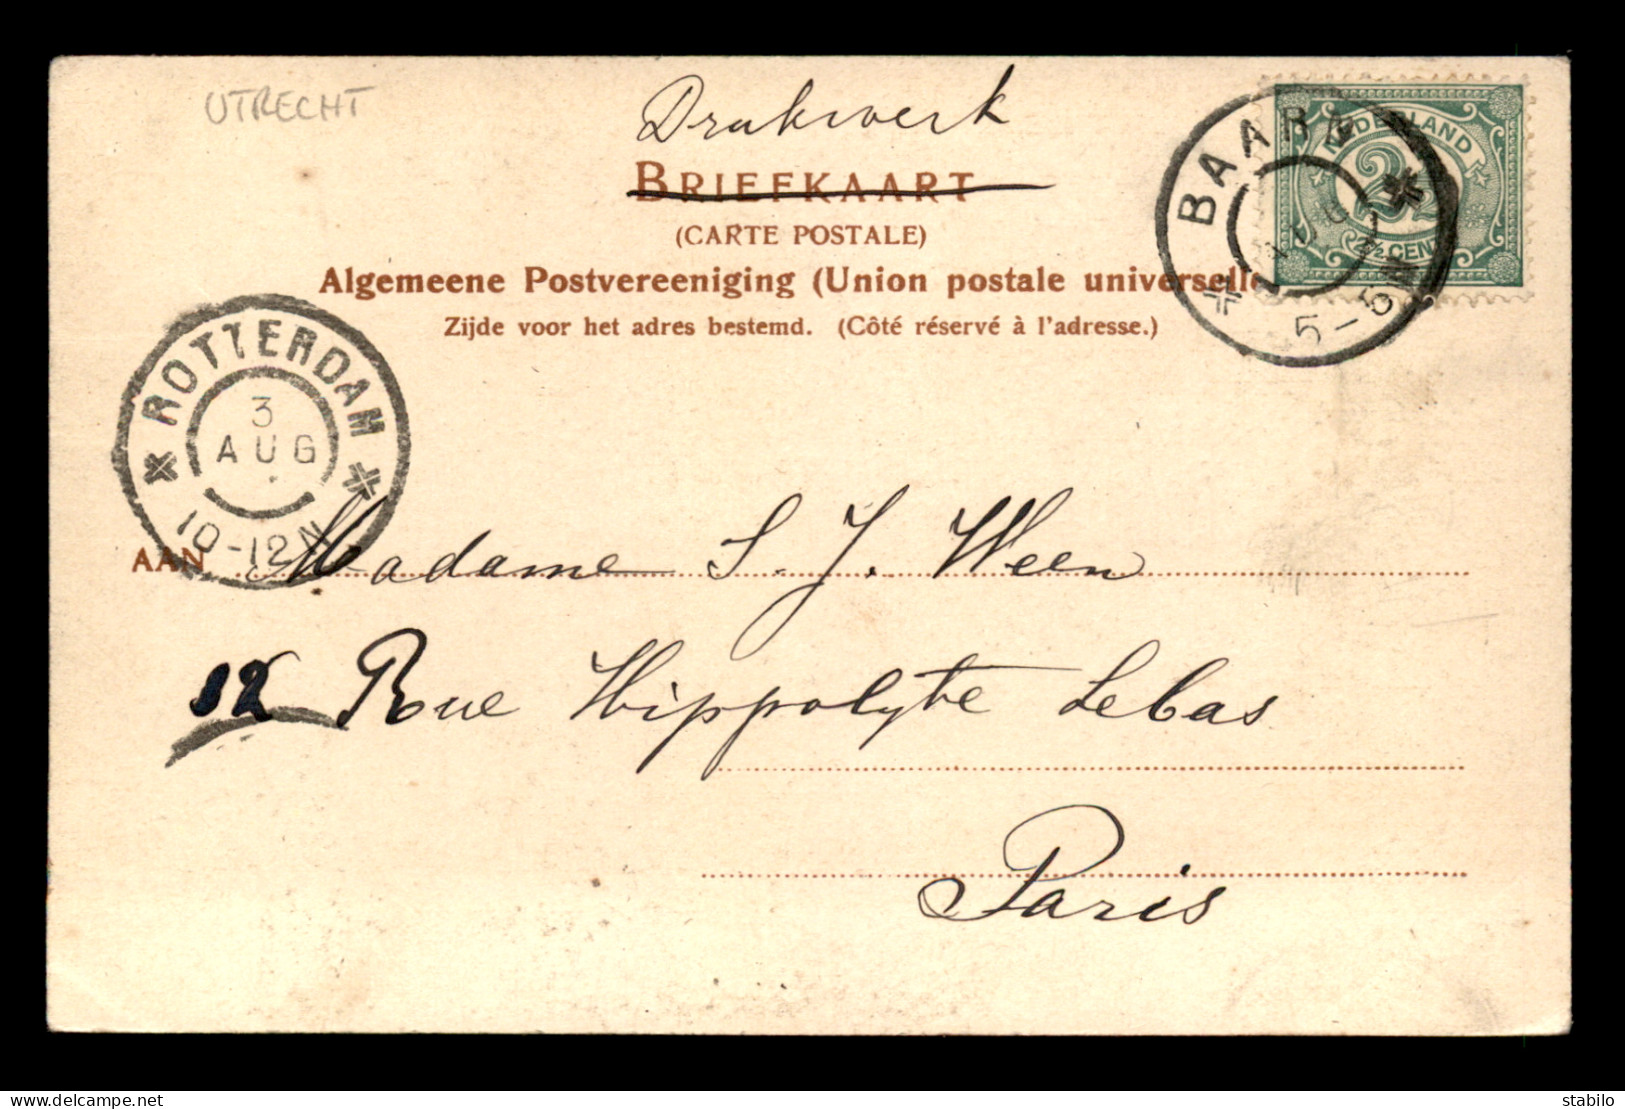 UTRECHT
Drukwerk
BRIEFKAART
(CARTE POSTALE)
Algemeene Postvereeniging (Union postale universelle
Zijde voor het adres bestemd. (Côté réservé à l'adresse.)
BAARN
5-6N
NEDERLAND
2½
2½ CENT
ROTTERDAM
3
AUG
10-12N
AAN Madame S. J. Ween
12 Rue Hippolyte Lebas
Paris
delcampe.net
stabilo